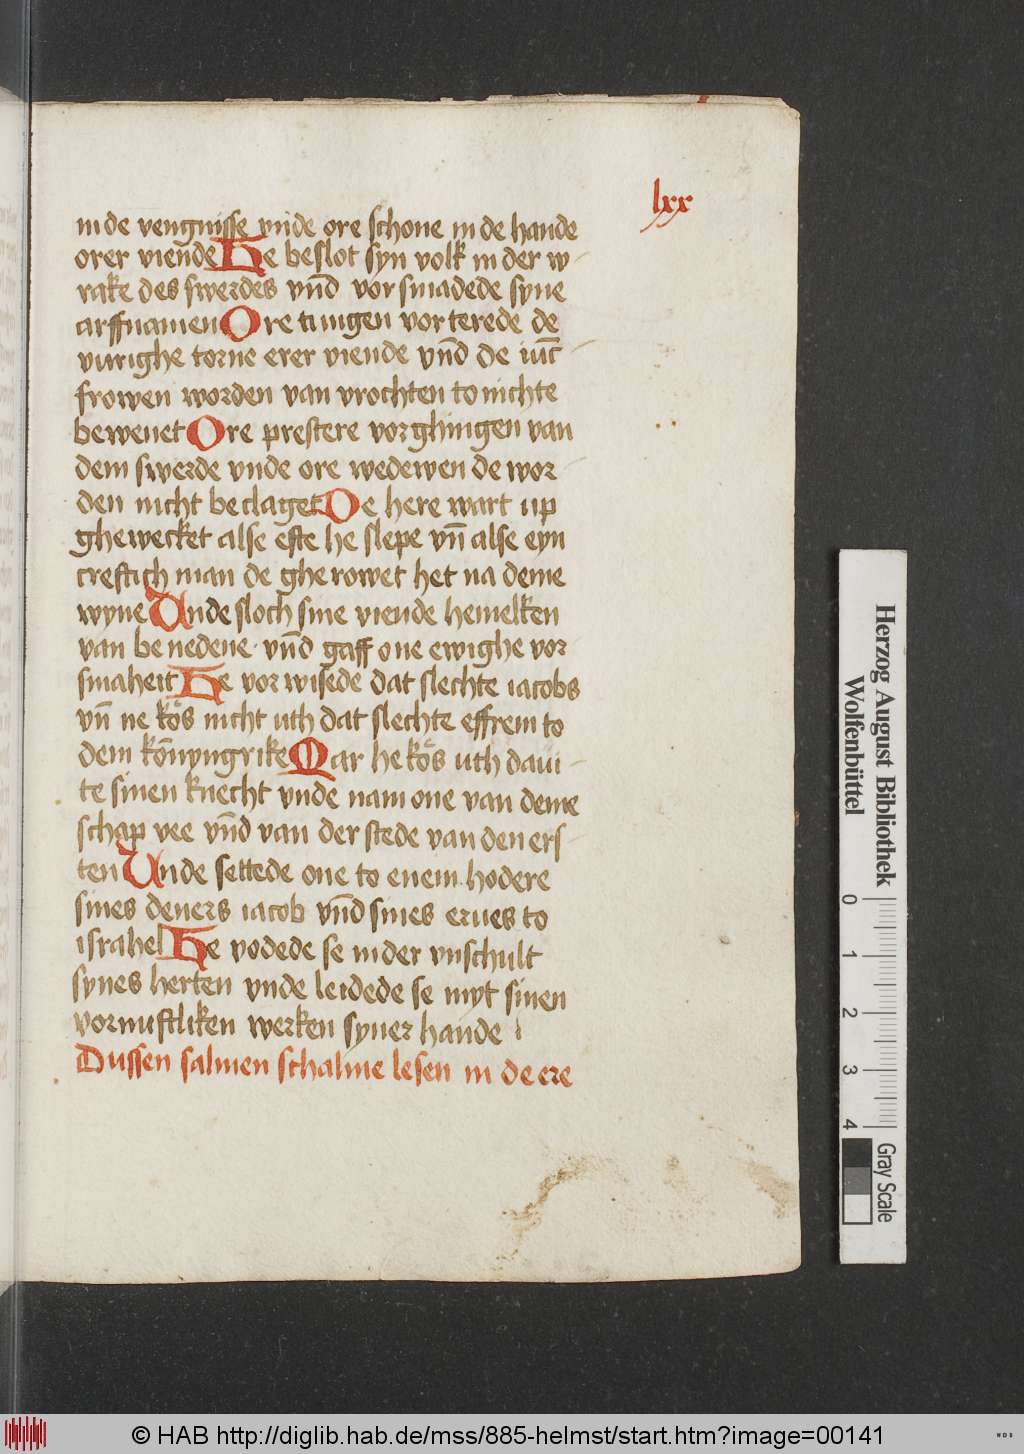 lxx
in de vengnisse vnde ore schone in de hande
orer viende He beslot syn volk in der w
rake des swerdes vn̄d vor smadede syne
arffnamen Ore tungen vor terede de
vurighe torne erer viende vn̄d de iūc
frowen worden van vrochten to nichte
bewenet Ore prestere vorghingen van
dem swerde vnde ore wedewen de wor
den nicht beclaget De here wart up
ghewecket alse efte he slepe vn̄ alse eyn
creftich man de ghe rowet het na deme
wyne Unde sloch sine viende hemelken
van be nedene vn̄d gaff one ewighe vor
smaheit He vor wisede dat slechte iacobs
vn̄ ne kos nicht uth dat slechte effrem to
dem kon̄yngrike Mar he kos uth daui
te sinen knecht vnde nam one van deme
schap vee vn̄d van der stede van den ers
ten Unde settede one to enem hodere
sines deners iacob vn̄d sines erues to
israhel He vodede se in der vnschult
synes herten vnde leidede se myt sinen
vornuftliken werken syner hande
Dussen salmen schalme lesen in de ere
Herzog August Bibliothek
Wolfenbüttel
0 1 2 3 4
Gray Scale
© HAB http://diglib.hab.de/mss/885-helmst/start.htm?image=00141